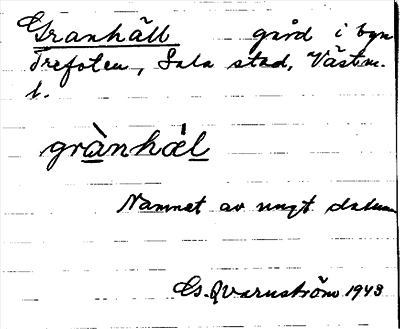 Granhäll gård i byn
Trefoten, Sala stad, Västm.
l.
grànhǽl
Namnet av ungt datum
G. Qvarnström 1943